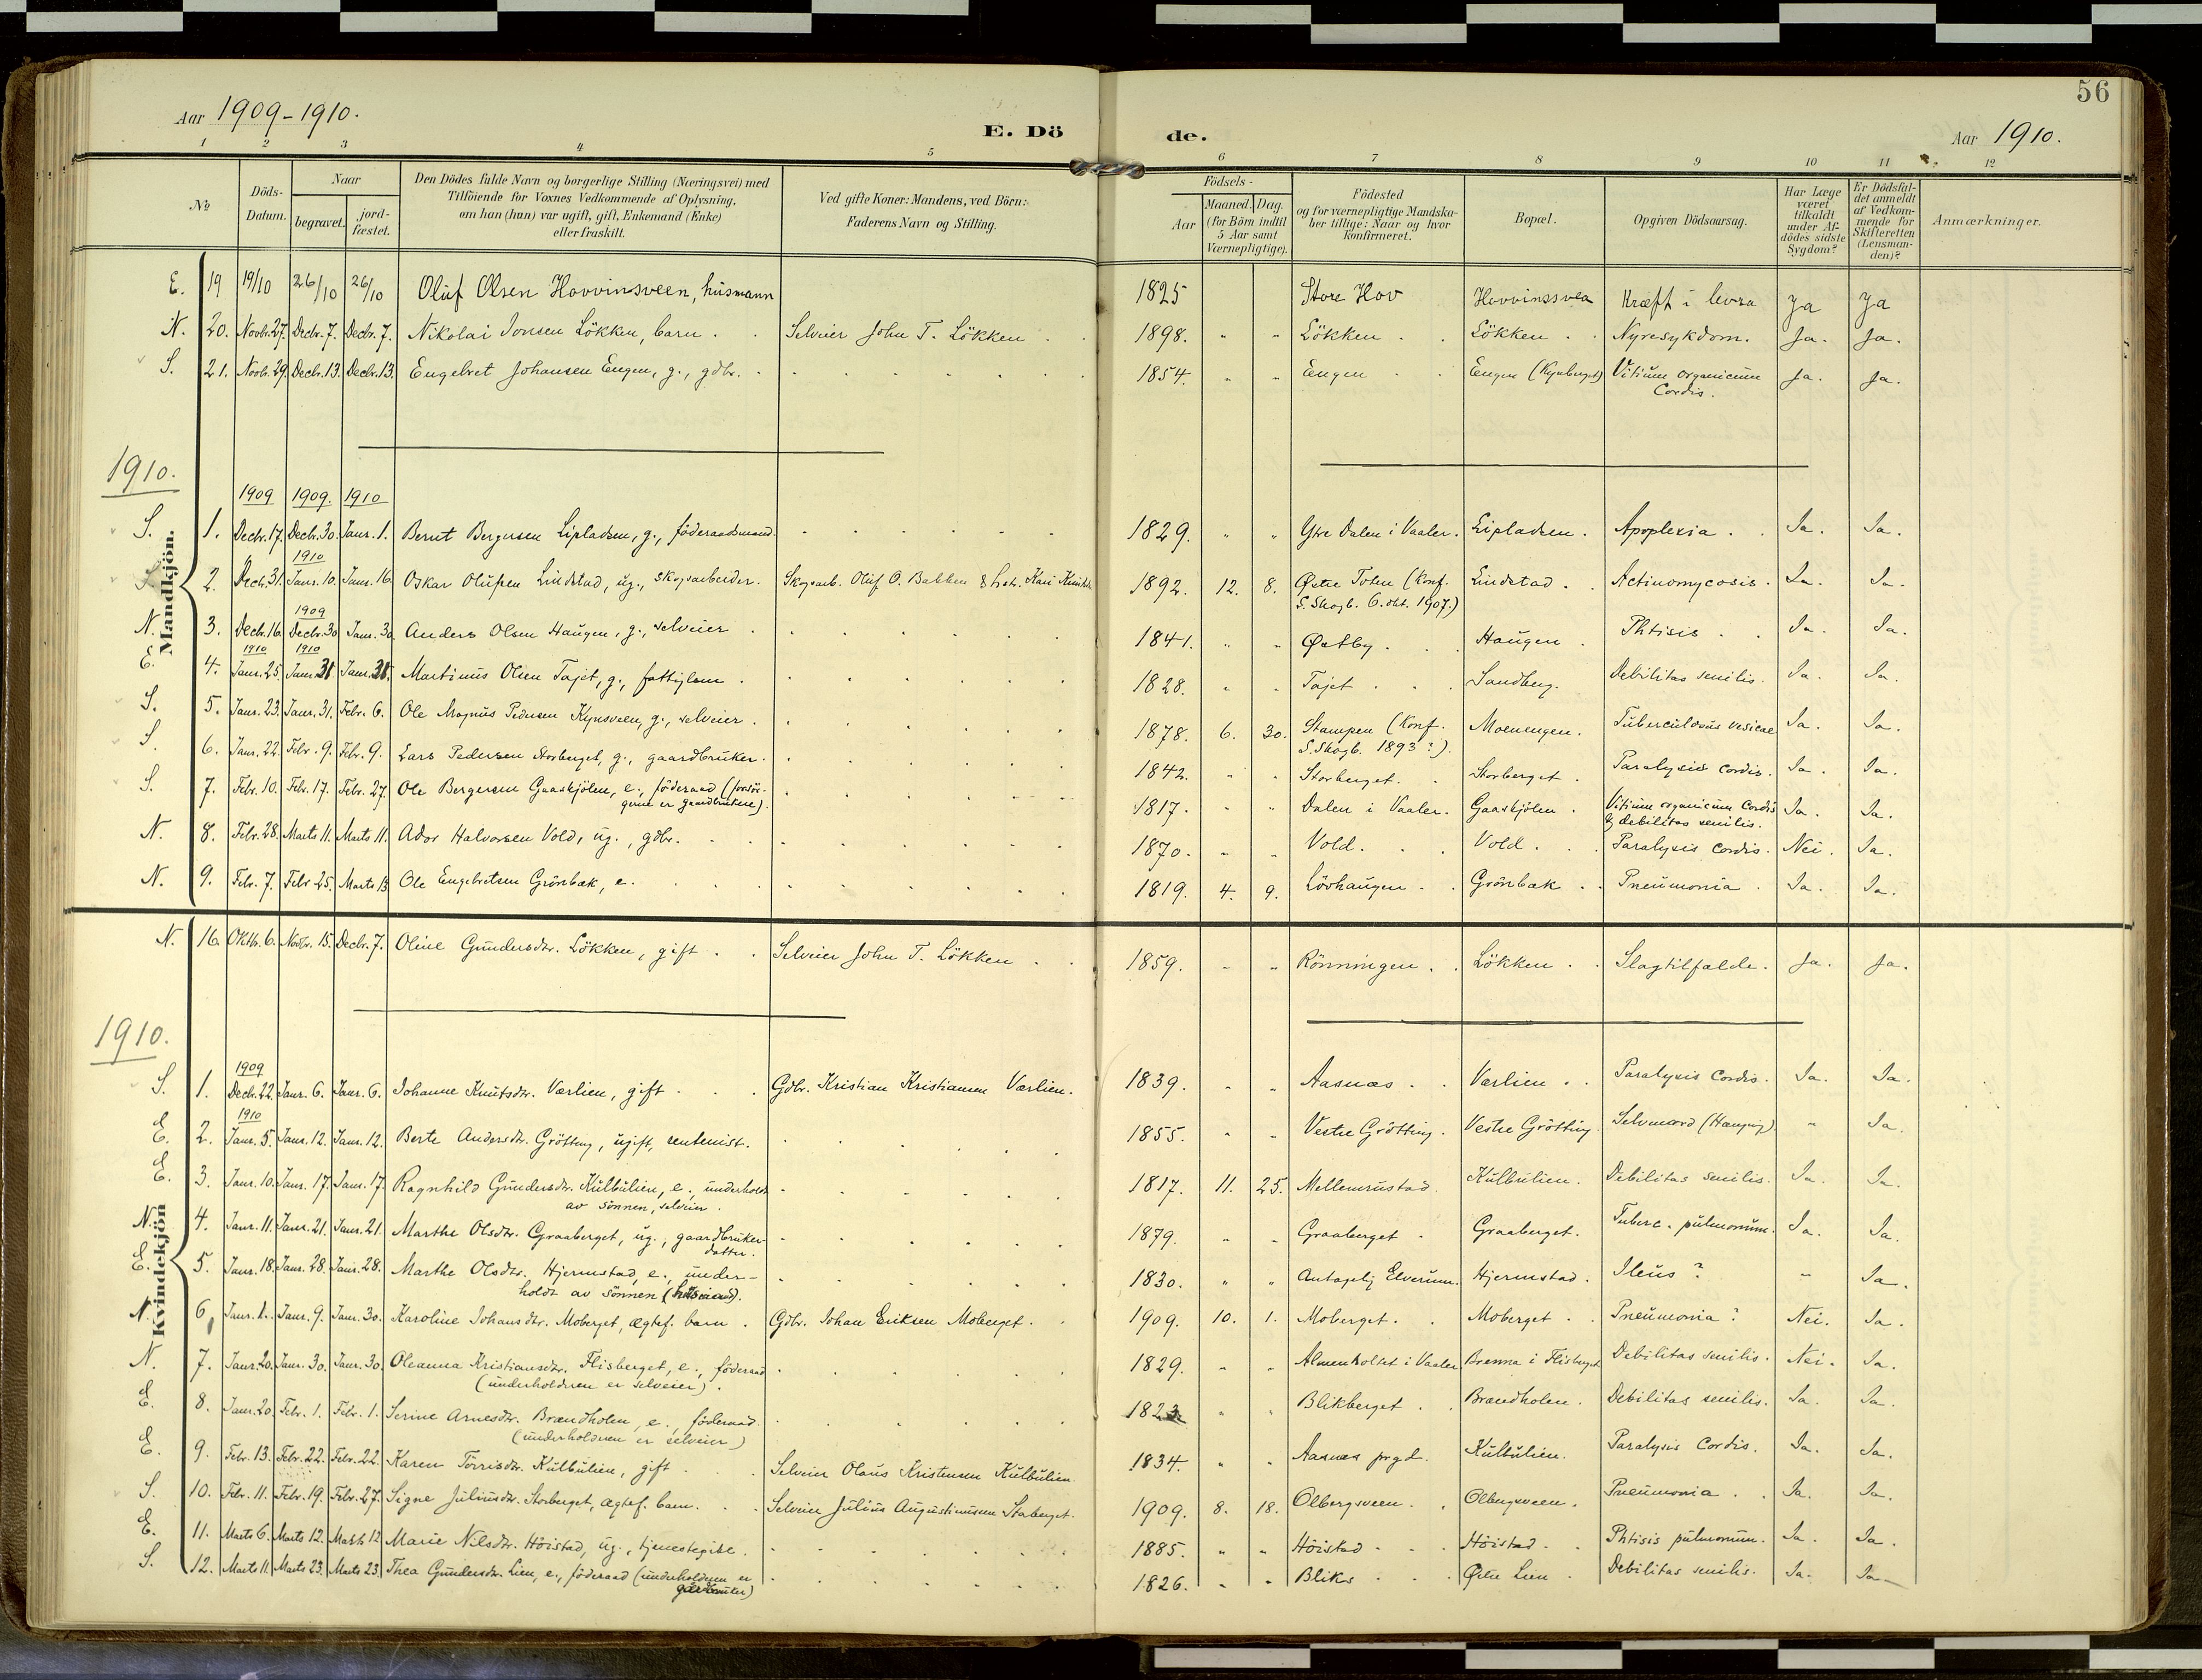 56
Aar 1909-1910.
E. Dö de.
Aar 1910.
1 2 3 4 5 6 7 8 9 10 11 12
No
Döds-Datum.
Naar
begravet.
jord-fæstet.
Den Dödes fulde Navn og borgerlige Stilling (Næringsvei) med
Tilföiende for Voxnes Vedkommende af Oplysning,
om han (hun) var ugift, gift, Enkemand (Enke)
eller fraskilt.
Ved gifte Koner: Mandens, ved Börn:
Faderens Navn og Stilling.
Födsels-
Aar
Maaned. Dag.
(for Börn indtil
5 Aar samt
Værnepligtige).
Födested
og for værnepligtige Mandska-
ber tillige: Naar og hvor
konfirmeret.
Bopæl.
Opgiven Dödsaarsag.
Har Læge
været
tilkaldt
under Af-
dödes sidste
Sygdom?
Er Dödsfal-
det anmeldt
af Vedkom-
mende for
Skifteretten
(Lensman-
den)?
Anmærkninger.
Mandkjön.
E. 19 19/10 26/10 26/10 Oluf Olsen Hovvinsveen, husmann 1825 Store Hov Hovvinssveen Kræft i levra Ja Ja
N. 20. Novbr. 27. Decbr. 7. Decbr. 7. Nikolai Jonsen Lökken, barn. Selveier John T. Lökken 1898. " " Lökken Lökken Nyresykdom. Ja. Ja.
S. 21. Novbr. 29. Decbr. 13. Decbr. 13. Engebret Johansen Engen, g., gdbr. 1854. " " Engen Engen (Kynberget) Vitium organicum
Cordis. Ja. Ja.
1910.
1909 1909. 1910
S. 1. Decbr. 17. Decbr. 30. Janr. 1. Bernt Bergersen Lipladsen, g., föderaadsmand 1829. " " Ytre Dalen i Vaaler. Lipladsen. Apoplexia. Ja. Ja.
1910
S. 2. Decbr. 31. Janr. 10. Janr. 16. Oskar Olufsen Lindstad, ug., skogsarbeider. Skogsarb. Oluf O. Bakken & hst. Kari 1892. 12. 8. Østre Toten (Konf.
S. Skogb. 6. okt. 1907.) Lindstad. Actinomycosis. Ja. Ja.
1909
N. 3. Decbr. 16. Decbr. 30 Janr. 30 Anders Olsen Haugen, g., selveier 1841. " " Østby. Haugen. Phtisis Ja. Ja.
1910 1910
E. 4. Janr. 25. Janr. 31 Janr. 31. Martinus Olsen Tajet, g., fattiglem 1828. " " Tajet Sandberg. Debilitas senilis. Ja. Ja.
S. 5. Janr. 23. Janr. 31. Febr. 6. Ole Magnus Pedersen Kynsveen, g., selveier. 1878. 6. 30. Stampen (Konf.
S. Skogb. 1893?). Moenengen. Tuberculosus vesicae Ja. Ja.
S. 6. Janr. 22. Febr. 9. Febr. 9. Lars Pedersen Storberget, g., gaardbruker. 1842. " " Storberget. Storberget. Paralysis cordis. Ja. Ja.
S. 7. Febr. 10. Febr. 17. Febr. 27. Ole Bergersen Gaaskjölen, e., föderaad (forsör-
geren er gaardbruker). 1817. " " Dalen i Vaaler. Gaaskjölen. Vitium organicum Cordis
& debilitas senilis. Ja. Ja.
N. 8. Febr. 28. Marts 11. Marts 11. Ador Halvorsen Vold, ug., gdbr. 1870. " " Vold. Vold. Paralysis cordis. Nei. Ja.
N. 9. Febr. 7. Febr. 25. Marts 13 Ole Engebretsen Grönbæk, e. 1819. 4. 9. Lövhaugen Grönbæk Pneumonia Ja. Ja.
Kvindekjön
N. 16. Oktbr. 6. Novbr. 15. Decbr. 7. Oline Gundersdtr. Lökken, gift Selveier John T. Lökken 1859. " " Rönningen. Lökken Slagtilfælde. Ja. Ja.
1910.
1909
S. 1. Decbr. 22. Janr. 6. Janr. 6. Johanne Knutsdtr. Værlien, gift Gdbr. Kristian Kristiansen Værlien. 1839. " " Aasnæs Værlien. Paralysis Cordis. Ja. Ja.
1910
E. 2. Janr. 5. Janr. 12. Janr. 12. Berte Andersdtr. Grötting, ugift, rentenist. 1855. " " Vestre Grötting. Vestre Grötting. Selvmord (Hængning) " Ja.
E. 3. Janr. 10. Janr. 17. Janr. 17. Ragnhild Gundersdtr. Kulbulien, e., underholdt
av sönnen, selveier. 1817. 11. 25. Mellemrustad. Kulbulien. Debilitas senilis. Ja. Ja.
N. 4. Janr. 11. Janr. 21. Janr. 21. Marthe Olsdtr. Graaberget, ug., gaardbruker-
datter. 1879. " " Graaberget Graaberget. Tuberc. pulmonum. Ja. Ja.
E. 5. Janr. 18. Janr. 28. Janr. 28. Marthe Olsdtr. Hjermstad, e., under-
holdt av sönnen (husmand). 1830. " " Antagelig Elverum. Hjermstad. Ileus? " Ja.
N. 6, Janr. 1. Janr. 9. Janr. 30. Karoline Johansdtr. Moberget, ægtef. barn. Gdbr. Johan Eriksen Moberget. 1909. 10. 1. Moberget. Moberget Pneumonia? Nei. Ja.
N. 7. Janr. 20. Janr. 30. Janr. 30. Oleanna Kristiansdtr. Flisberget, e., föderaad
(underholderen er selveier). 1829. " " Almenholtet i Vaaler Brenna i Flisberget Debilitas senilis. Nei. Ja.
E. 8. Janr. 20. Febr. 1. Febr. 1. Serine Arnesdtr. Brændholen, e., föderaad.
(underholderen er selveier) 1823. " " Blikberget Brændholen. Debilitas senilis. Ja. Ja.
E. 9. Febr. 13. Febr. 22. Febr. 22. Karen Torrisdtr. Kulbulien, gift Selveier Olaus Kristensen Kulbulien. 1834. " " Aasnæs prgd. Kulbulien. Paralysis Cordis. Ja. Ja.
S. 10. Febr. 11. Febr. 19. Febr. 27. Signe Juliusdtr. Storberget, ægtef. barn. Selveier Julius Augustinussen Storberget. 1909. 8. 18. Olbergsveen. Olbergsveen. Pneumonia Ja. Ja.
E. 11. Marts 6. Marts 12. Marts 12 Marie Nilsdtr. Höistad, ug., tjenestepike. 1885. " " Höistad Höistad Phtisis pulmonum. Ja. Ja.
S. 12. Marts 11. Marts 23. Marts 23. Thea Gundersdtr. Lien, e., föderaad (underholderen er
gårdbruker) 1826. " " Bliks Øvre Lien Debilitas senilis. Ja. Ja